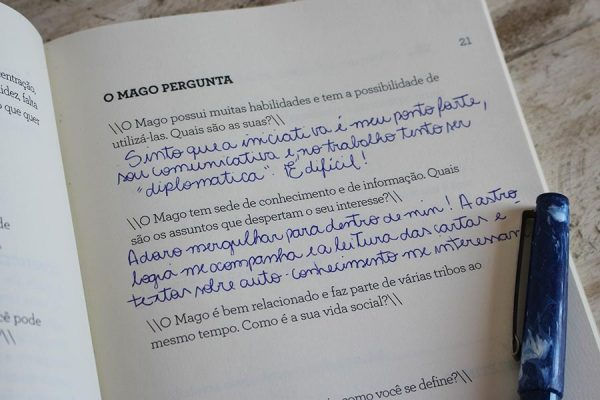 21
O MAGO PERGUNTA
\\O Mago possui muitas habilidades e tem a possibilidade de
utilizá-las. Quais são as suas?\\
Sinto que a iniciativa é meu ponto forte,
sou comunicativa e, no trabalho tento ser
"diplomática". É difícil!
\\O Mago tem sede de conhecimento e de informação. Quais
são os assuntos que despertam o seu interesse?\\
Adoro mergulhar para dentro de mim! A astro
logia me acompanha e a leitura das cartas e
textos sobre auto-conhecimento me interessam
\\O Mago é bem relacionado e faz parte de várias tribos ao
mesmo tempo. Como é a sua vida social?\\
como você se define?\\
entração,
idez, falta
o que quer
cê pode
s?\\